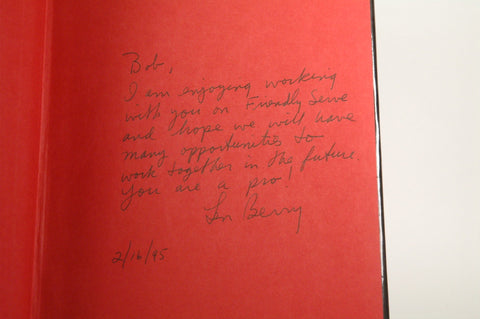 Bob,
I am enjoying working
with you on Friendly Serve
and hope we will have
many opportunities to
work together in the future.
You are a pro!
Len Berry
2/16/95